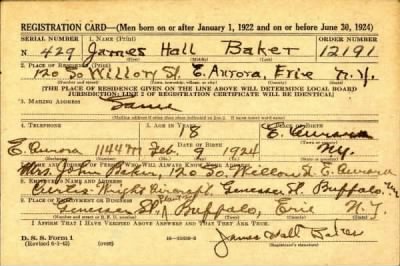 REGISTRATION CARD—(Men born on or after January 1, 1922 and on or before June 30, 1924)
SERIAL NUMBER 1. NAME (Print) ORDER NUMBER
N 429 James Hall Baker 12191
(First) (Middle) (Last)
2. PLACE OF RESIDENCE
120 So Willow St. E. Aurora, Erie N.Y.
[THE PLACE OF RESIDENCE GIVEN ON THE LINE ABOVE WILL DETERMINE LOCAL BOARD
JURISDICTION; LINE 2 OF REGISTRATION CERTIFICATE WILL BE IDENTICAL]
3. MAILING ADDRESS
Same
4. TELEPHONE 5. AGE IN YEARS 6. PLACE OF BIRTH
18 E. Aurora
DATE OF BIRTH
E. Aurora 1144M Feb 9 1924 N.Y.
7. NAME AND ADDRESS OF PERSON WHO WILL ALWAYS KNOW YOUR ADDRESS
Mrs. John Baker, 120 So. Willow St. E. Aurora
8. EMPLOYER'S NAME AND ADDRESS
Curtis Wright Aircraft Genessee St. Buffalo, N.Y.
9. PLACE OF EMPLOYMENT OR BUSINESS
Genessee St., Buffalo, Erie N.Y.
I AFFIRM THAT I HAVE VERIFIED ABOVE ANSWERS AND THAT THEY ARE TRUE.
D. S. S. Form 1
(Revised 6-1-42)
James Hall Baker
(Registrant's signature)